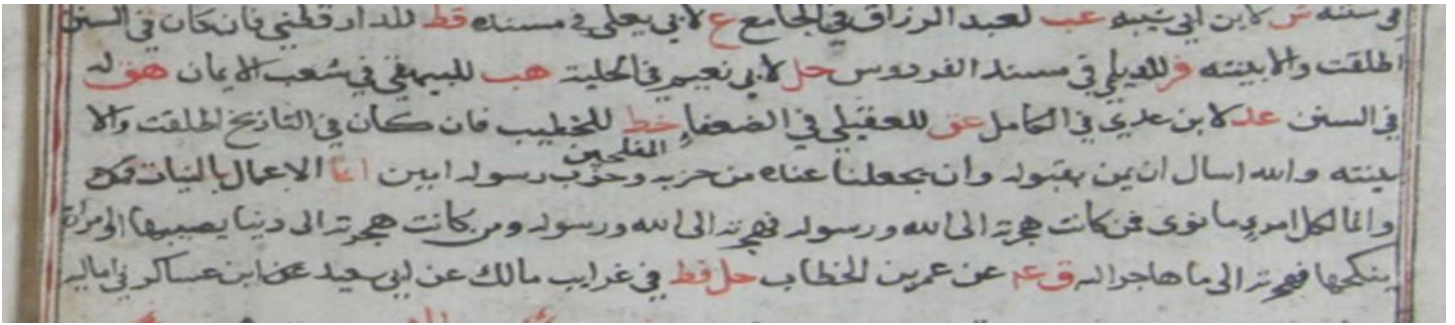 في سننه ش لابن ابي شيبه عب لعبد الرزاق في الجامع ع لابي يعلي في مسنده قط للدار قطني فان كان في السنن
اطلقت والا بينته فر للديلمي في مسند الفردوس حل لابي نعيم في الحلية هب للبيهقي في شعب الايمان هق له
في السنن عد لابن عدي في الكامل عق للعقيلي في الضعفاء خط للخطيب فان كان في التاريخ اطلقت والا
بينته والله اسال ان يمن بقبوله وان يجعلنا عنده من حزبه وحزب رسوله المفلحين امين انما الاعمال بالنيات
وانما لكل امرئ ما نوى فمن كانت هجرته الى الله ورسوله فهجرته الى الله ورسوله ومن كانت هجرته الى دنيا يصيبها او امراة
ينكحها فهجرته الى ما هاجر اليه ق عم عن عمر بن الخطاب حل قط في غرايب مالك عن ابي سعيد عن ابن عساكر في اماليه